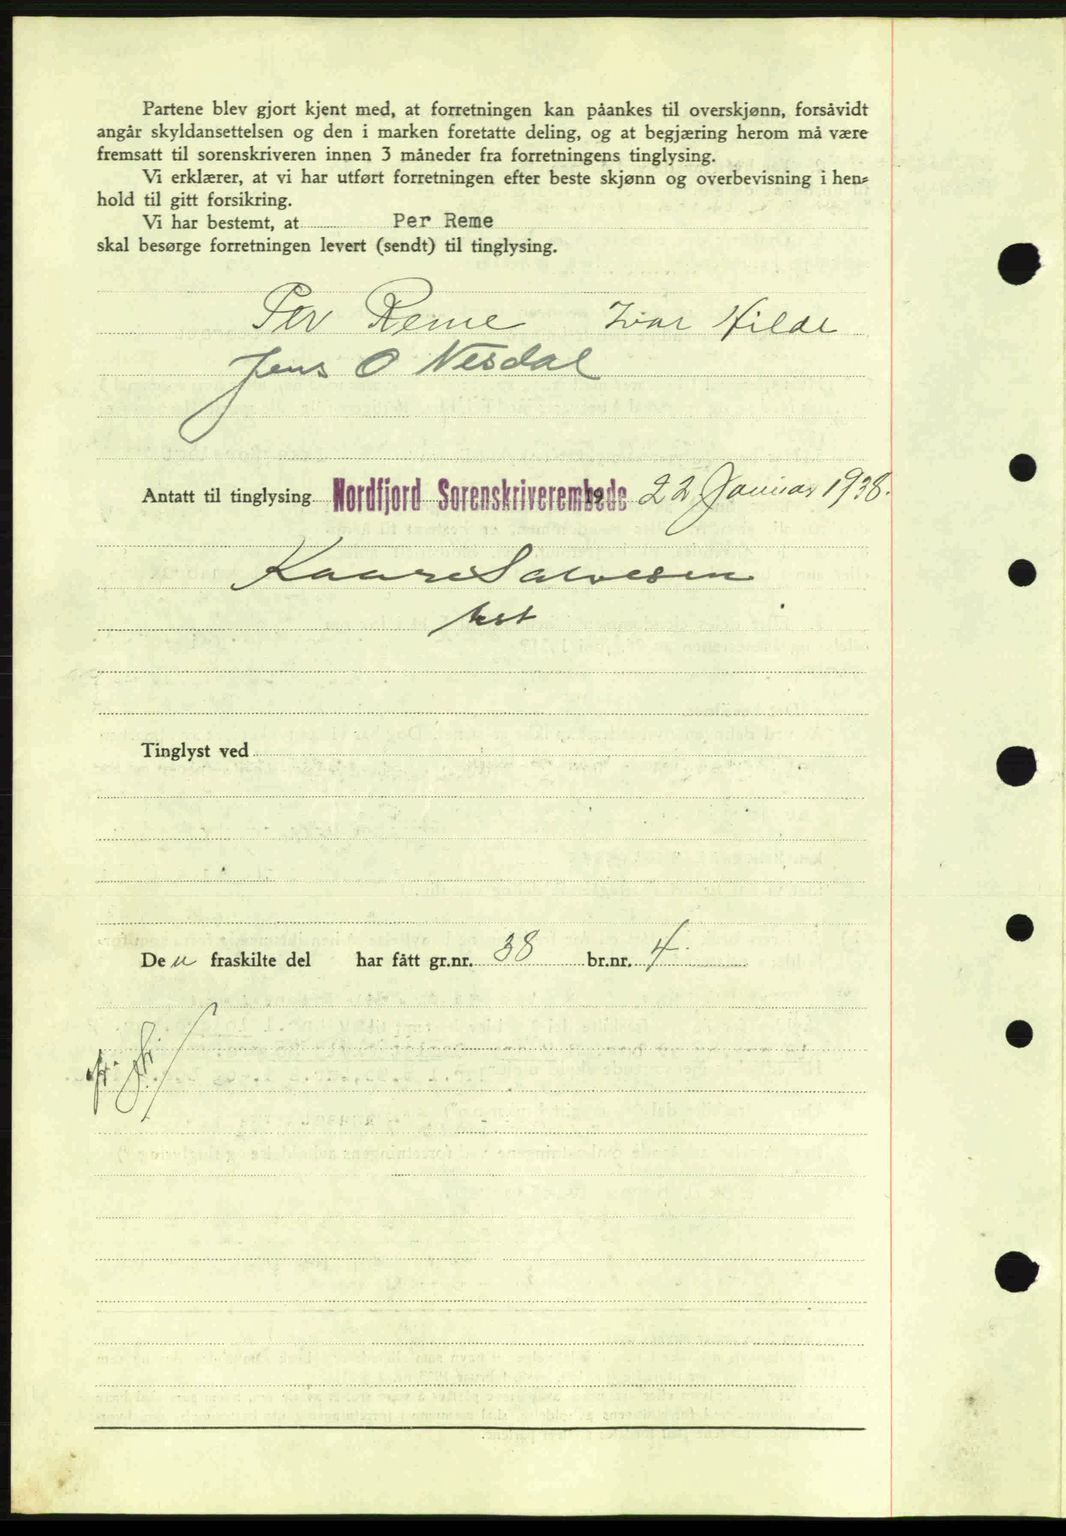 Partene blev gjort kjent med, at forretningen kan påankes til overskjønn, forsåvidt
angår skyldansettelsen og den i marken foretatte deling, og at begjæring herom må være
fremsatt til sorenskriveren innen 3 måneder fra forretningens tinglysing.
Vi erklærer, at vi har utført forretningen efter beste skjønn og overbevisning i hen-
hold til gitt forsikring.
Vi har bestemt, at Per Reme
skal besørge forretningen levert (sendt) til tinglysing.
Per Reme Ivar Hilde
Jens O Nesdal
Antatt til tinglysing Nordfjord Sorenskriverembede 19 22 Januar 1938.
Kaare Salvesen
Tinglyst ved
Den fraskilte del har fått gr.nr. 38 br.nr. 4.